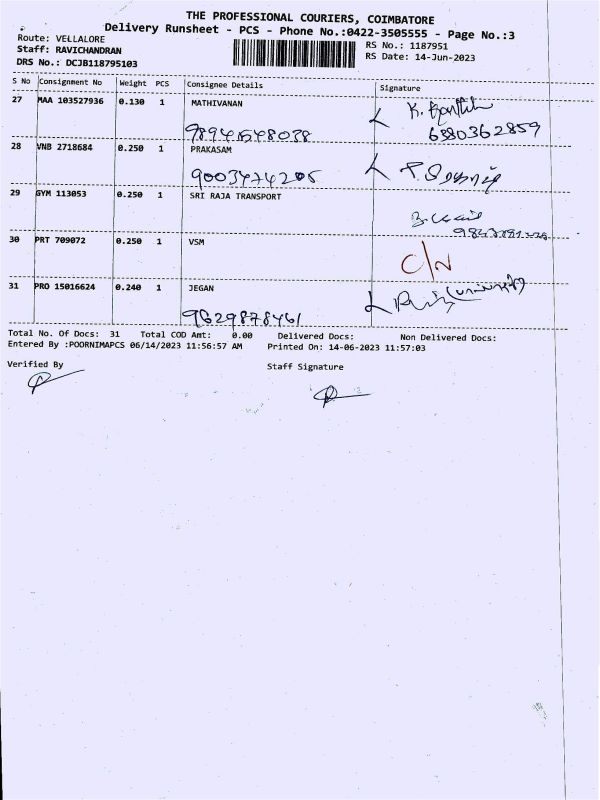 THE PROFESSIONAL COURIERS, COIMBATORE
Delivery Runsheet - PCS - Phone No.:0422-3505555 - Page No.:3
Route: VELLALORE
RS No.: 1187951
Staff: RAVICHANDRAN
RS Date: 14-Jun-2023
DRS No.: DCJB118795103
S No Consignment No Weight PCS Consignee Details Signature
27 MAA 103527936 0.130 1 MATHIVANAN
6380362859
28 VNB 2718684 0.250 1 PRAKASAM
9003474205
29 GYM 113053 0.250 1 SRI RAJA TRANSPORT
30 PRT 709072 0.250 1 VSM
C/N
31 PRO 15016624 0.240 1 JEGAN
9629878461
Total No. Of Docs: 31 Total COD Amt: 0.00 Delivered Docs: Non Delivered Docs:
Entered By :POORNIMAPCS 06/14/2023 11:56:57 AM Printed On: 14-06-2023 11:57:03
Verified By
Staff Signature